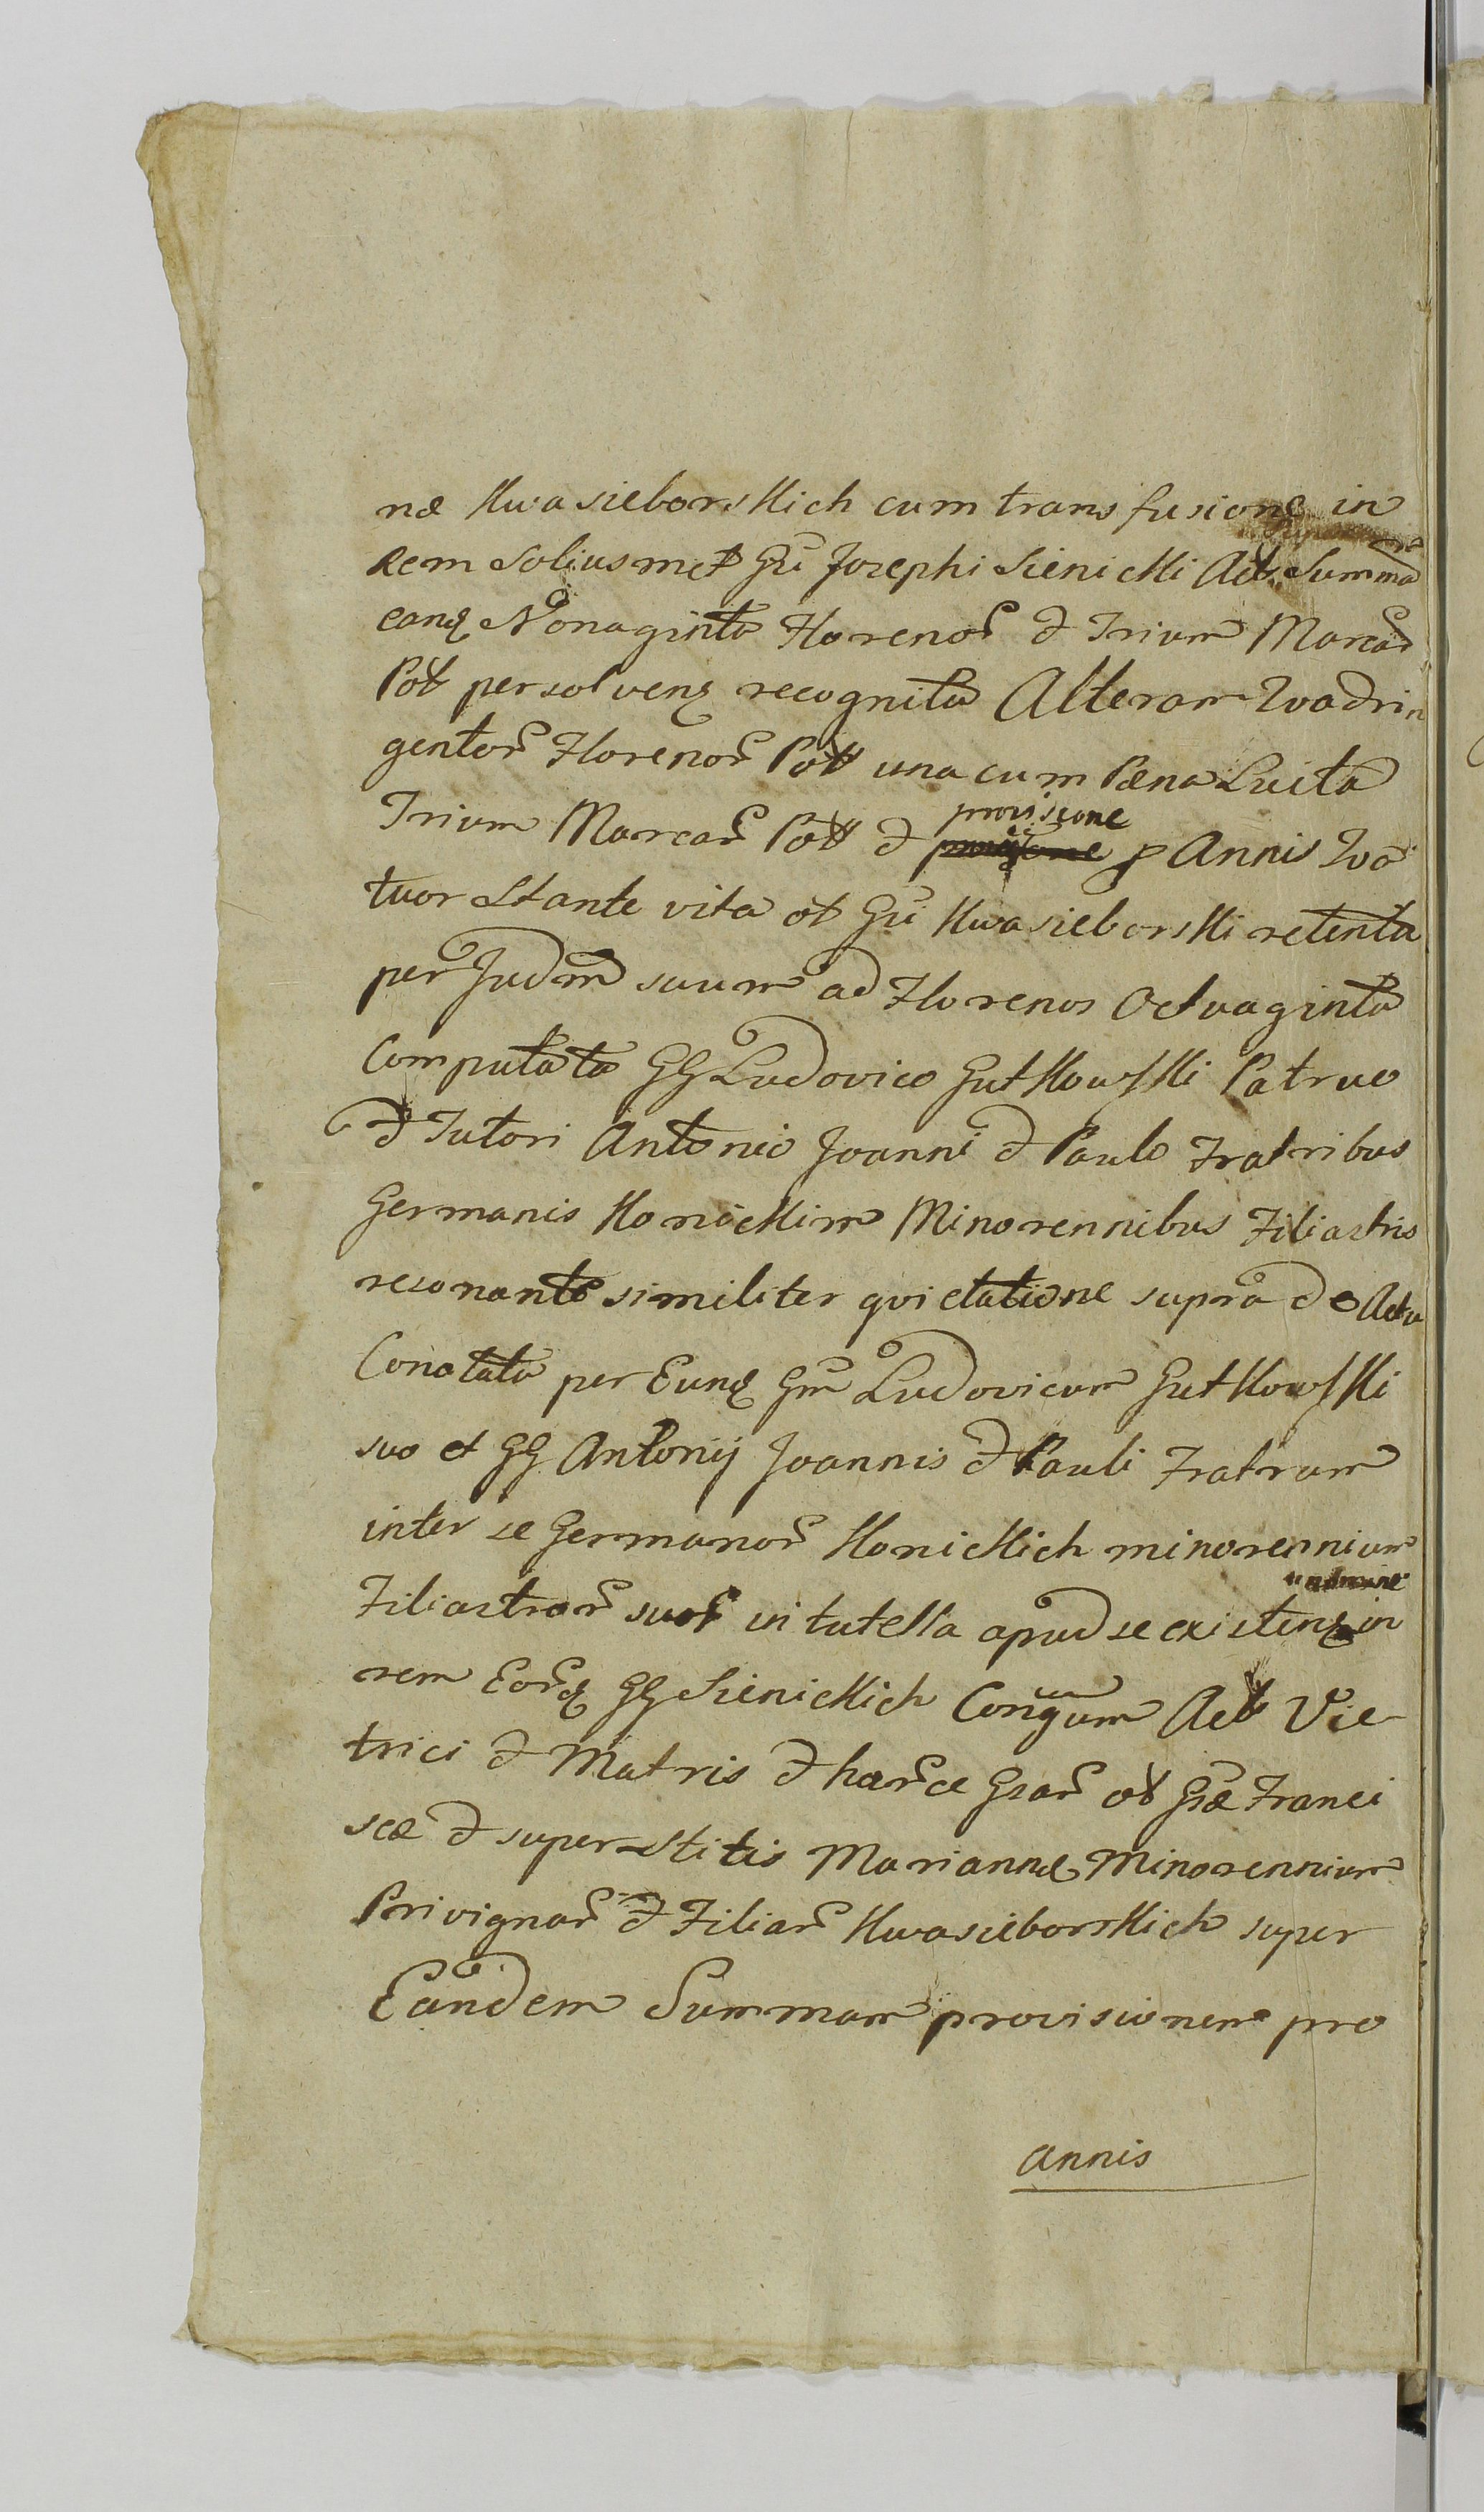 næ Kwasieborskich cum transfusione in
Rem Soliusmet Gu Josephi Sienicki Act Summa
eanq Nonaginta Florenor et Trium Marcar
Poll persolvenq recognita Alteram Quadrin
gentor Florenor Poll una cum Pæna Luita
provisione
Trium Marcar Poll et p Annis Qua
tuor Stante vita ol Gu Kwasieborski retenta
per Judm suum ad Florenos Octuaginta
Computata GG Ludovico Gutkowski Patruo
et Tutori Antonio Joanni et Paulo Fratribus
Germanis Konickim Minorennibus Filiastris
resonante similiter qvietatione supra de Actu
Conotata per Eunq Gm Ludovicum Gutkowski
suo et GG Antonij Joannis et Pauli Fratrum
inter se Germanor Konickich minorennium
nomine
Filiastror suor in tutella apud se existenq in
rem Eorq GG Sienickich Conjgum Act Vie
trici et Matris et harce Gsar ol Gsæ Franci
scæ et superstitis Mariannæ Minorennium
Privignar et Filiar Kwasieborskich super
Eandem Summam provisionem pro
annis